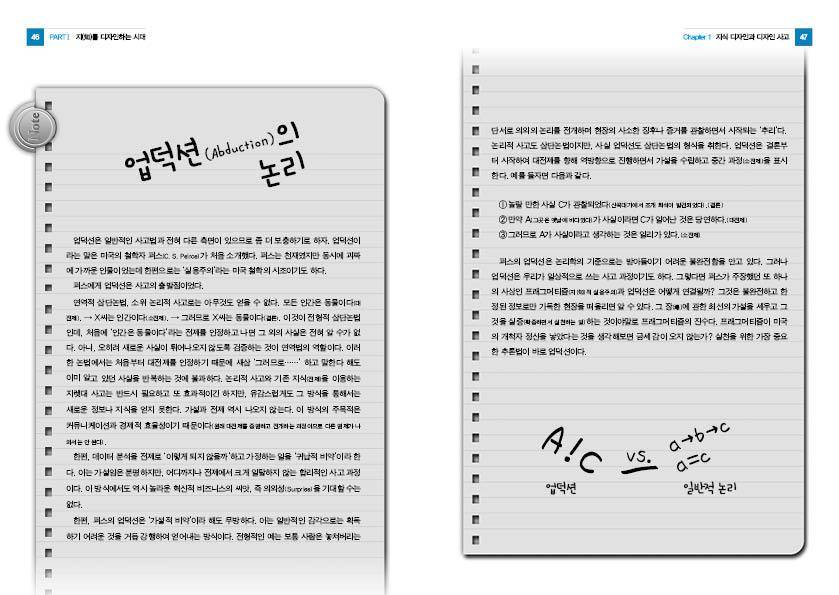 46 PART I 지(知)를 디자인하는 시대
Note
업덕션(Abduction)의
논리
업덕션은 일반적인 사고법과 전혀 다른 측면이 있으므로 좀 더 보충하기로 하자. 업덕션이
라는 말은 미국의 철학자 퍼스(C. S. Peirce)가 처음 소개했다. 퍼스는 천재였지만 동시에 괴짜
에 가까운 인물이었는데 한편으로는 ‘실용주의’라는 미국 철학의 시조이기도 하다.
퍼스에게 업덕션은 사고의 출발점이었다.
연역적 삼단논법, 소위 논리적 사고로는 아무것도 얻을 수 없다. 모든 인간은 동물이다(대
전제). → X씨는 인간이다(소전제). → 그러므로 X씨는 동물이다(결론). 이것이 전형적 삼단논법
인데, 처음에 ‘인간은 동물이다’라는 전제를 인정하고 나면 그 외의 사실은 전혀 알 수가 없
다. 아니, 오히려 새로운 사실이 튀어나오지 않도록 검증하는 것이 연역법의 역할이다. 이러
한 논법에서는 처음부터 대전제를 인정하기 때문에 새삼 ‘그러므로……’ 하고 말한다 해도
이미 알고 있던 사실을 반복하는 것에 불과하다. 논리적 사고와 기존 지식(전제)을 이용하는
지렛대 사고는 반드시 필요하고 또 효과적이긴 하지만, 유감스럽게도 그 방식을 통해서는
새로운 정보나 지식을 얻지 못한다. 가설과 전제 역시 나오지 않는다. 이 방식의 주목적은
커뮤니케이션과 경제적 효율성이기 때문이다(원래 대전제를 증명하고 전개하는 과정이므로 다른 원제가 나
와서는 안 된다).
한편, 데이터 분석을 전제로 ‘이렇게 되지 않을까’ 하고 가정하는 일을 ‘귀납적 비약’이라 한
다. 이는 가설임은 분명하지만, 어디까지나 전제에서 크게 일탈하지 않는 합리적인 사고 과정
이다. 이 방식에서도 역시 놀라운 혁신적 비즈니스의 씨앗, 즉 의외성(Surprise)을 기대할 수는
없다.
한편, 퍼스의 업덕션은 ‘가설적 비약’이라 해도 무방하다. 이는 일반적인 감각으로는 획득
하기 어려운 것을 거듭 강행하여 얻어내는 방식이다. 전형적인 예는 보통 사람은 놓쳐버리는
Chapter 1 지식 디자인과 디자인 사고 47
단서로 의외의 논리를 전개하며 현장의 사소한 징후나 증거를 관찰하면서 시작되는 ‘추리’다.
논리적 사고도 삼단논법이지만, 사실 업덕션도 삼단논법의 형식을 취한다. 업덕션은 결론부
터 시작하여 대전제를 향해 역방향으로 진행하면서 가설을 수립하고 중간 과정(소전제)을 표시
한다. 예를 들자면 다음과 같다.
① 놀랄 만한 사실 C가 관찰되었다(산꼭대기에서 조개 화석이 발견되었다). (결론)
② 만약 A(그곳은 옛날에 바다였다)가 사실이라면 C가 일어난 것은 당연하다. (대전제)
③ 그러므로 A가 사실이라고 생각하는 것은 일리가 있다. (소전제)
퍼스의 업덕션은 논리학의 기준으로는 받아들이기 어려운 불완전함을 안고 있다. 그러나
업덕션은 우리가 일상적으로 쓰는 사고 과정이기도 하다. 그렇다면 퍼스가 주장했던 또 하나
의 사상인 프래그머티즘(지적 실용주의)과 업덕션은 어떻게 연결될까? 그것은 불완전하고 한
정된 정보로만 가득한 현장을 떠올리면 알 수 있다. 그 장(場)에 관한 최선의 가설을 세우고 그
것을 실증(확증하면서 실천하는 일)하는 것이야말로 프래그머티즘의 진수다. 프래그머티즘이 미국
의 개척자 정신을 낳았다는 것을 생각해보면 금세 감이 오지 않는가? 실천을 위한 가장 중요
한 추론법이 바로 업덕션이다.
A!C vs. a→b→c
a=c
업덕션 일반적 논리